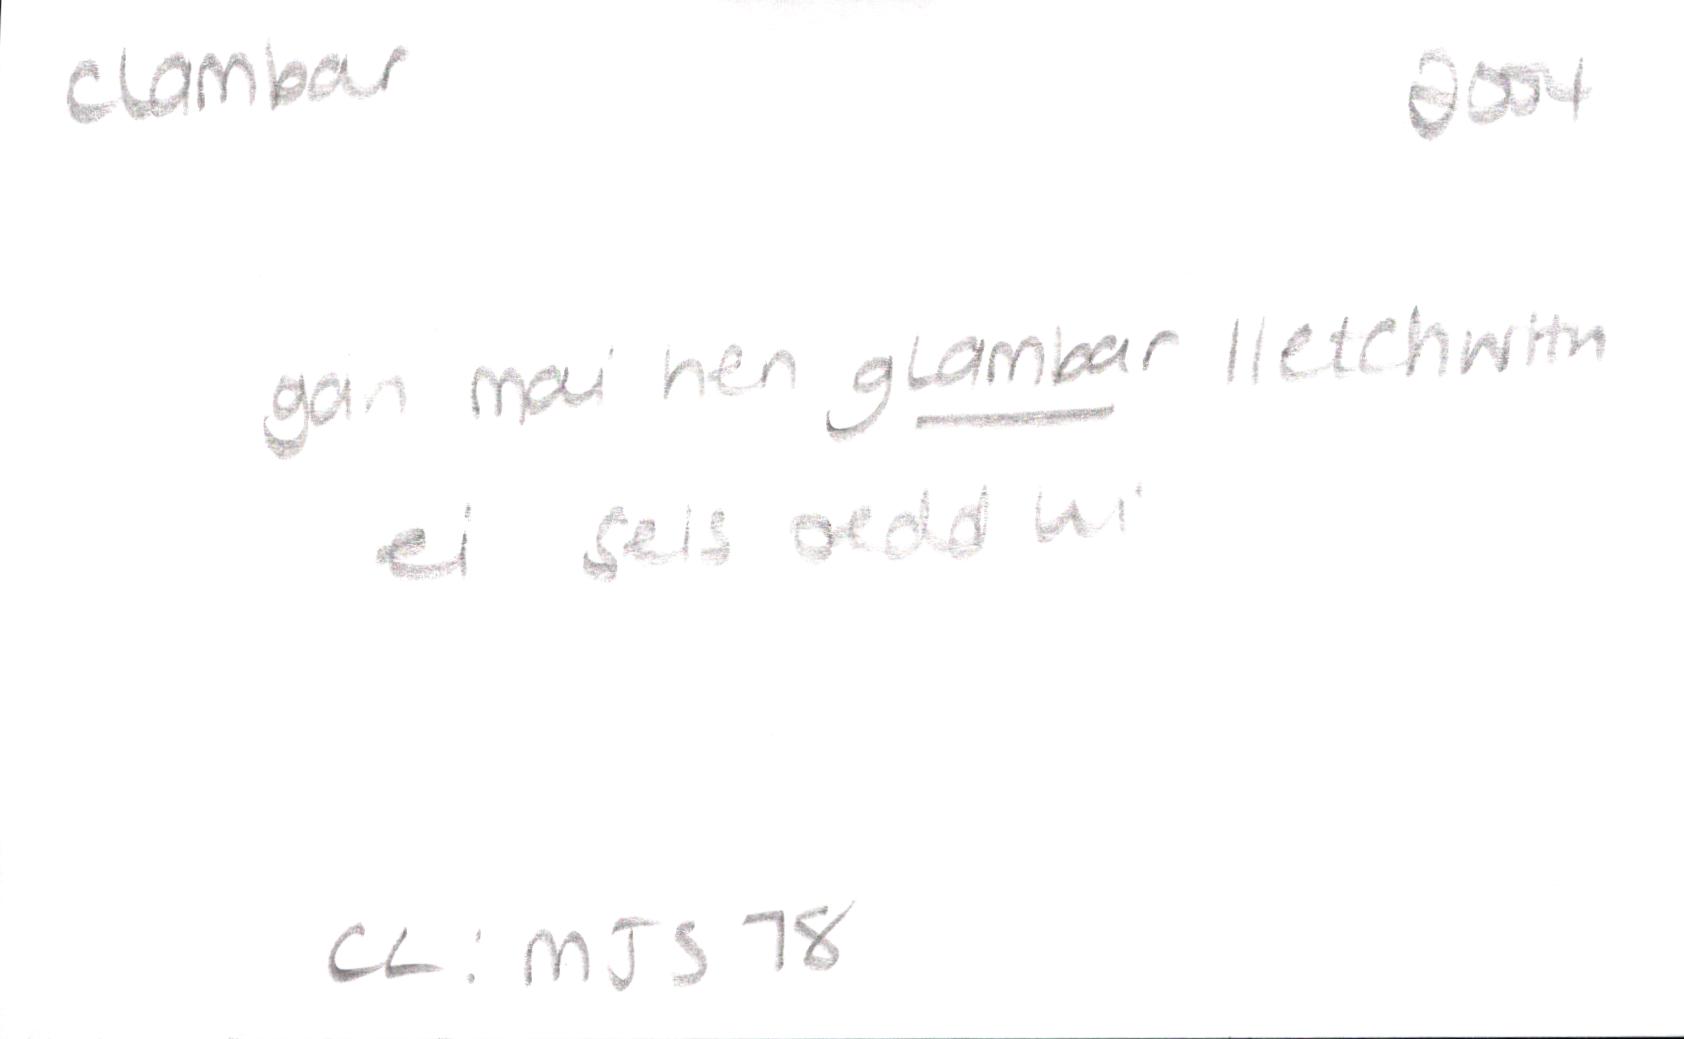 clambar 2004
gan mai hen glambar lletchwith
ei seis oedd hi
CL: MJS 78